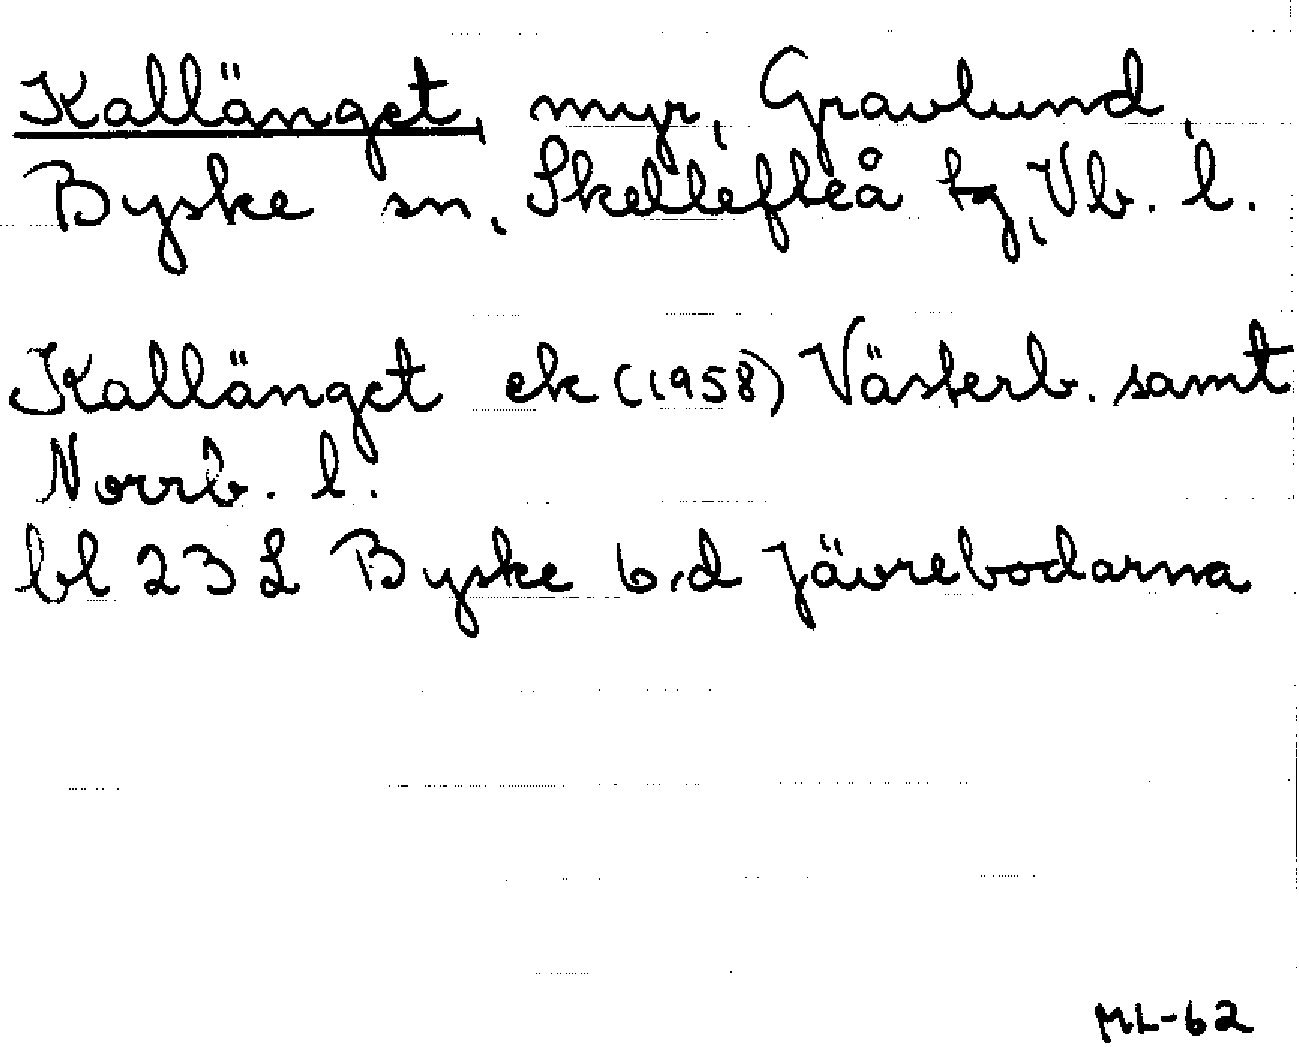 Kallänget, myr, Gravlund,
Byske sn, Skellefteå tg, Vb. l.
Kallänget ek (1958) Västerb. samt
Norrb. l.
bl 23 L Byske b,d Jävrebodarna
ML-62